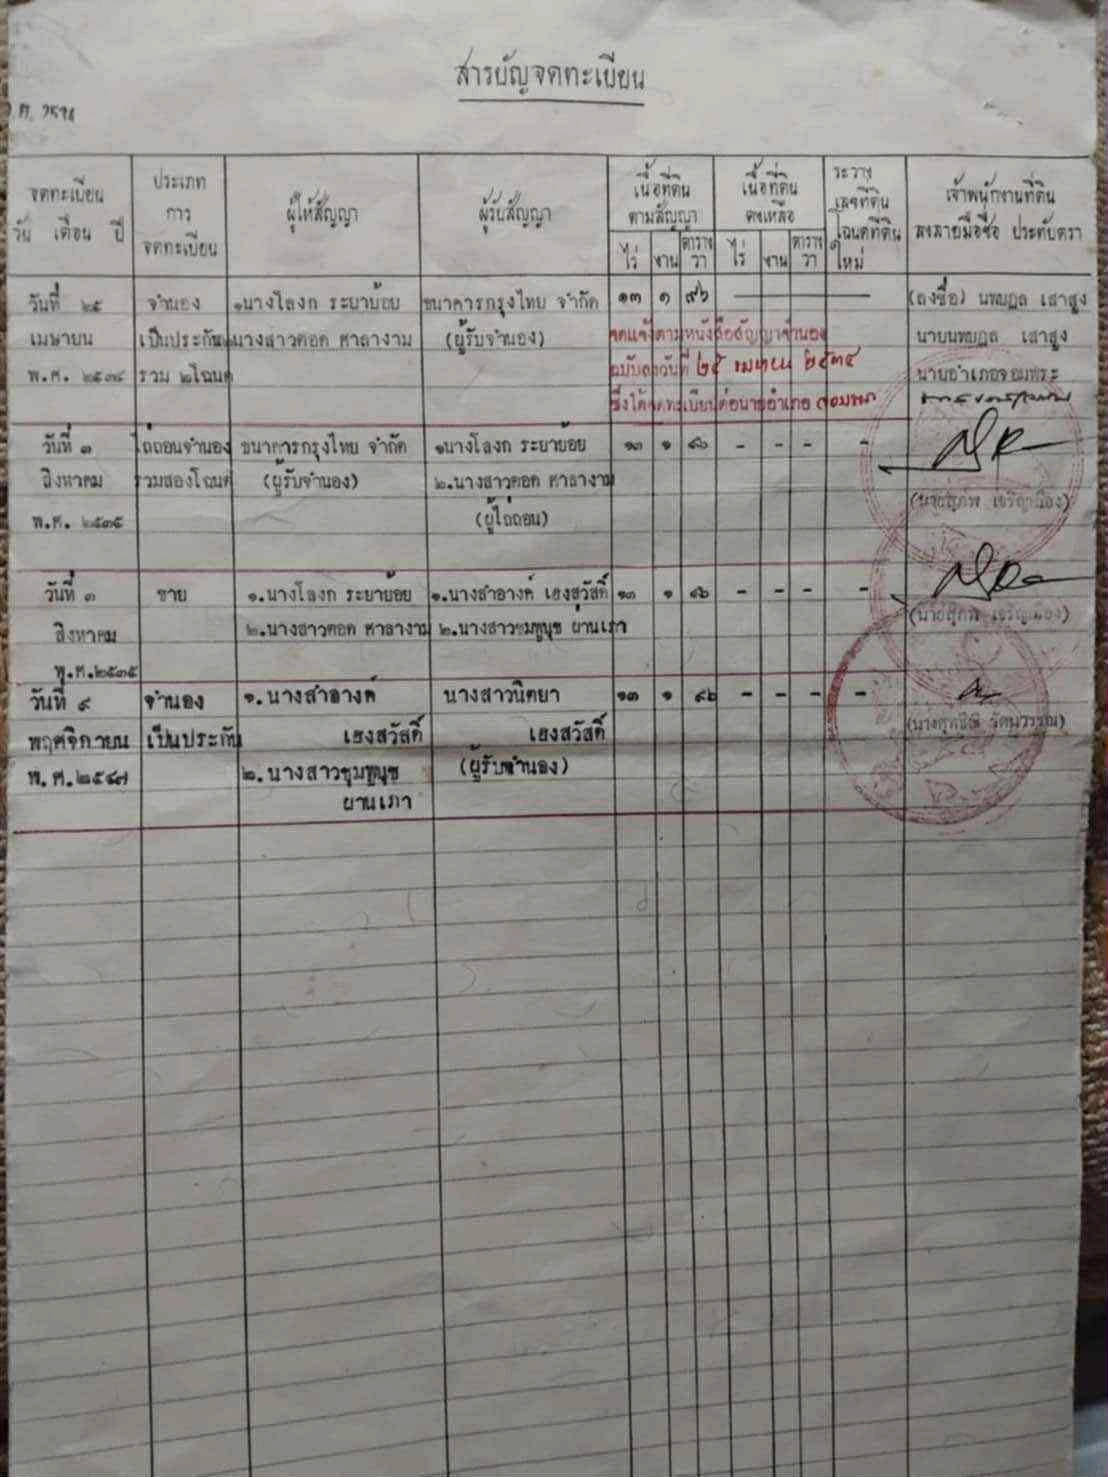 สารบัญจดทะเบียน
จดทะเบียน วัน เดือน ปี
ประเภทการจดทะเบียน
ผู้ให้สัญญา
ผู้รับสัญญา
เนื้อที่ดินตามสัญญา
ไร่ งาน ตารางวา
เนื้อที่ดินคงเหลือ
ไร่ งาน ตารางวา
ระวาง เลขที่ดิน โฉนดที่ดินใหม่
เจ้าพนักงานที่ดิน ลงลายมือชื่อ ประทับตรา
วันที่ ๒๕ จำนอง ๑นางโลงก ระยาย้อย ธนาคารกรุงไทย จำกัด ๑๓ ๑ ๙๖ (ลงชื่อ) เสาสูง
เมษายน เป็นประกัน นางสาวคอด ศาลางาม (ผู้รับจำนอง) จดแจ้งตามหนังสือสัญญาจำนอง เสาสูง
พ.ศ. ๒๕๓๔ รวม ๒โฉนด ฉบับลงวันที่ ๒๕ เมษายน ๒๕๓๔ นายอำเภอจอมพระ
ซึ่งได้จดทะเบียนต่อนายอำเภอ จอมพระ
วันที่ ๓ ไถ่ถอนจำนอง ธนาคารกรุงไทย จำกัด ๑นางโลงก ระยาย้อย ๑๓ ๑ ๙๖ - - - -
สิงหาคม รวมสองโฉนด (ผู้รับจำนอง) ๒.นางสาวคอด ศาลางาม (นายสุภพ เจริญเมือง)
พ.ศ. ๒๕๓๕ (ผู้ไถ่ถอน)
วันที่ ๓ ขาย ๑.นางโลงก ระยาย้อย ๑.นางสำอางค์ เฮงสวัสดิ์ ๑๓ ๑ ๙๖ - - - - (นายสุภพ เจริญเมือง)
สิงหาคม ๒.นางสาวคอด ศาลางาม ๒.นางสาวชมพูนุช ผ่านเภา
พ.ศ.๒๕๓๕
วันที่ ๙ จำนอง ๑.นางสำอางค์ นางสาวนิตยา ๑๓ ๑ ๙๖ - - - -
พฤศจิกายน เป็นประกัน เฮงสวัสดิ์ เฮงสวัสดิ์
พ.ศ.๒๕๔๗ ๒.นางสาวชมพูนุช (ผู้รับจำนอง)
ผ่านเภา